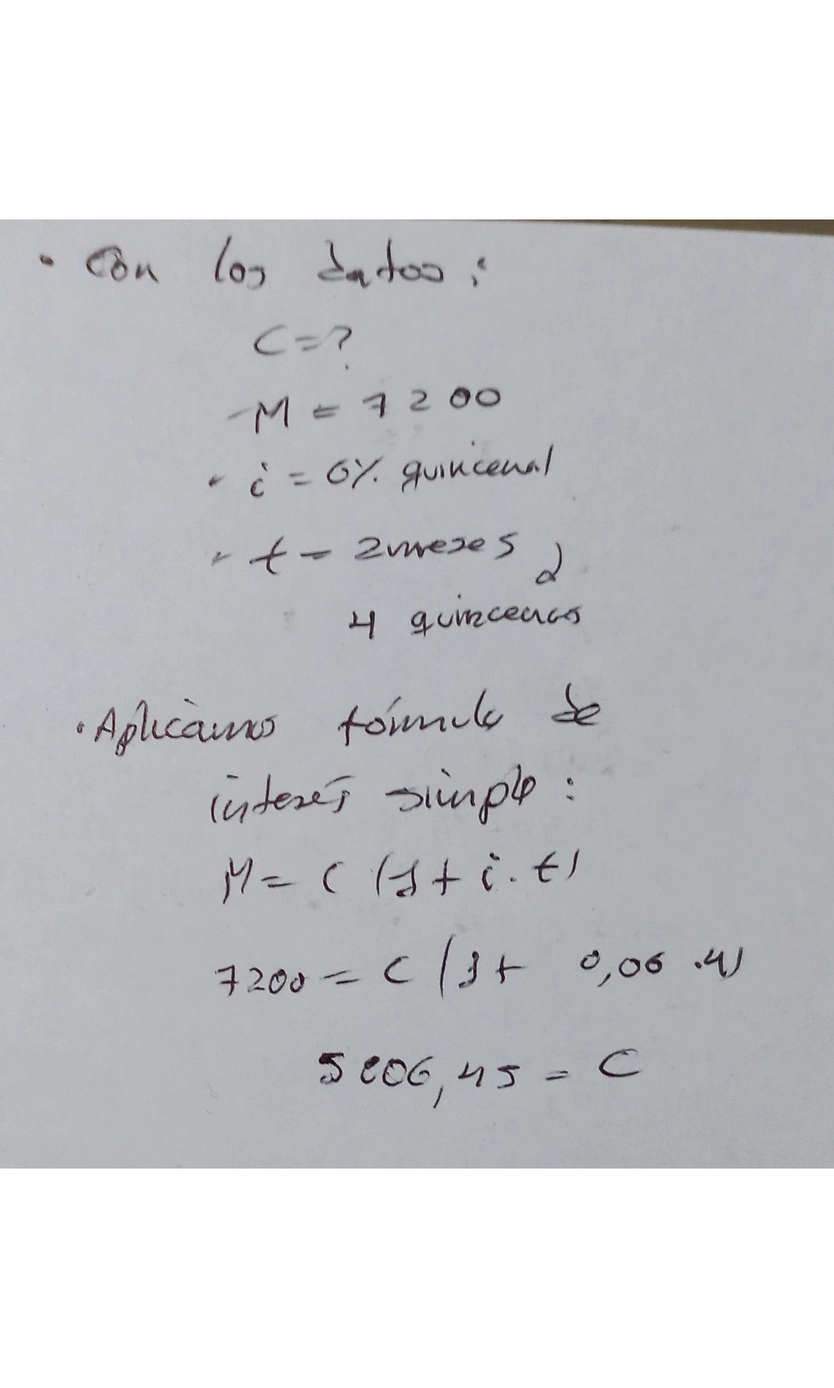 • Con los datos:
C=?
- M = 7200
• i = 6% quincenal
• t = 2 meses
4 quincenas
• Aplicamos fórmula de
interés simple:
M = C (1 + i . t)
7200 = C (1 + 0,06 . 4)
5806,45 = C